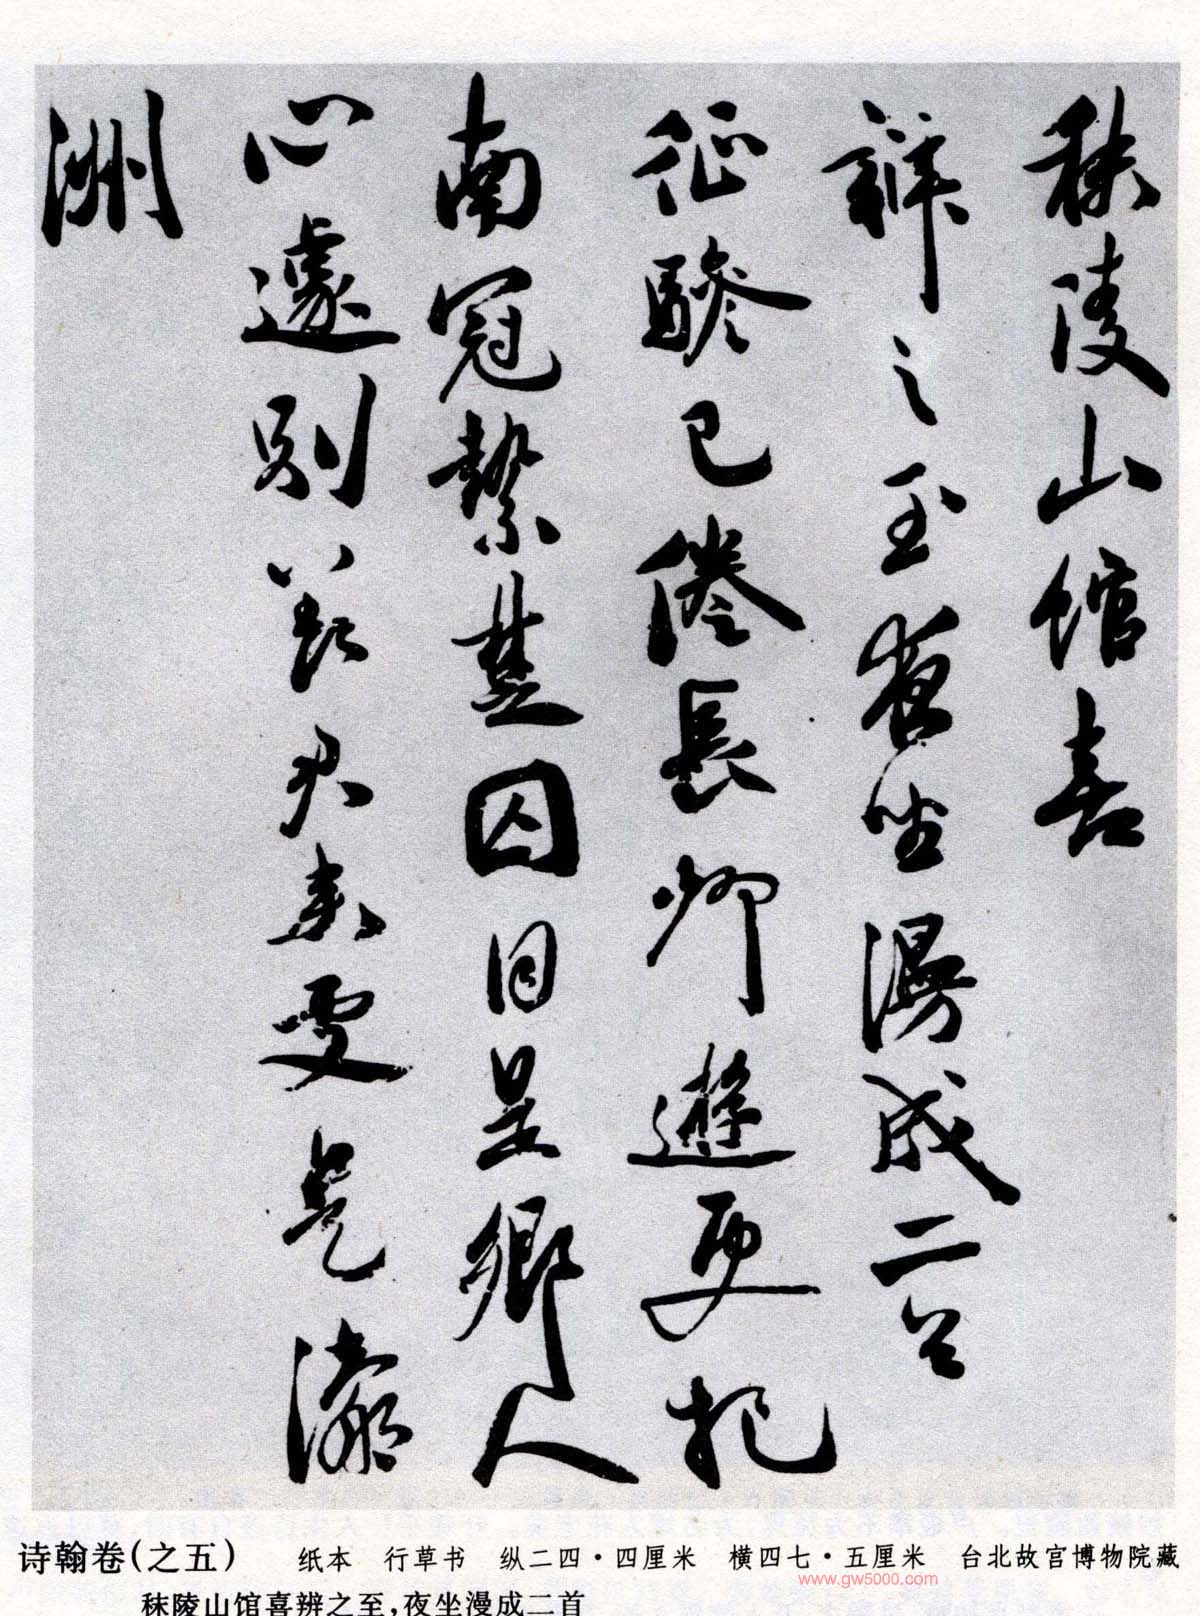 秣陵山馆喜
辨之至夜坐漫成二首
征骖已倦長卿遊更把
南冠縶楚囚目呈鄉人
心遽别
君来更是瀛
洲
诗翰卷(之五) 纸本 行草书 纵二四·四厘米 横四七·五厘米 台北故宫博物院藏
www.gw5000.com
秣陵山馆喜辨之至,夜坐漫成二首